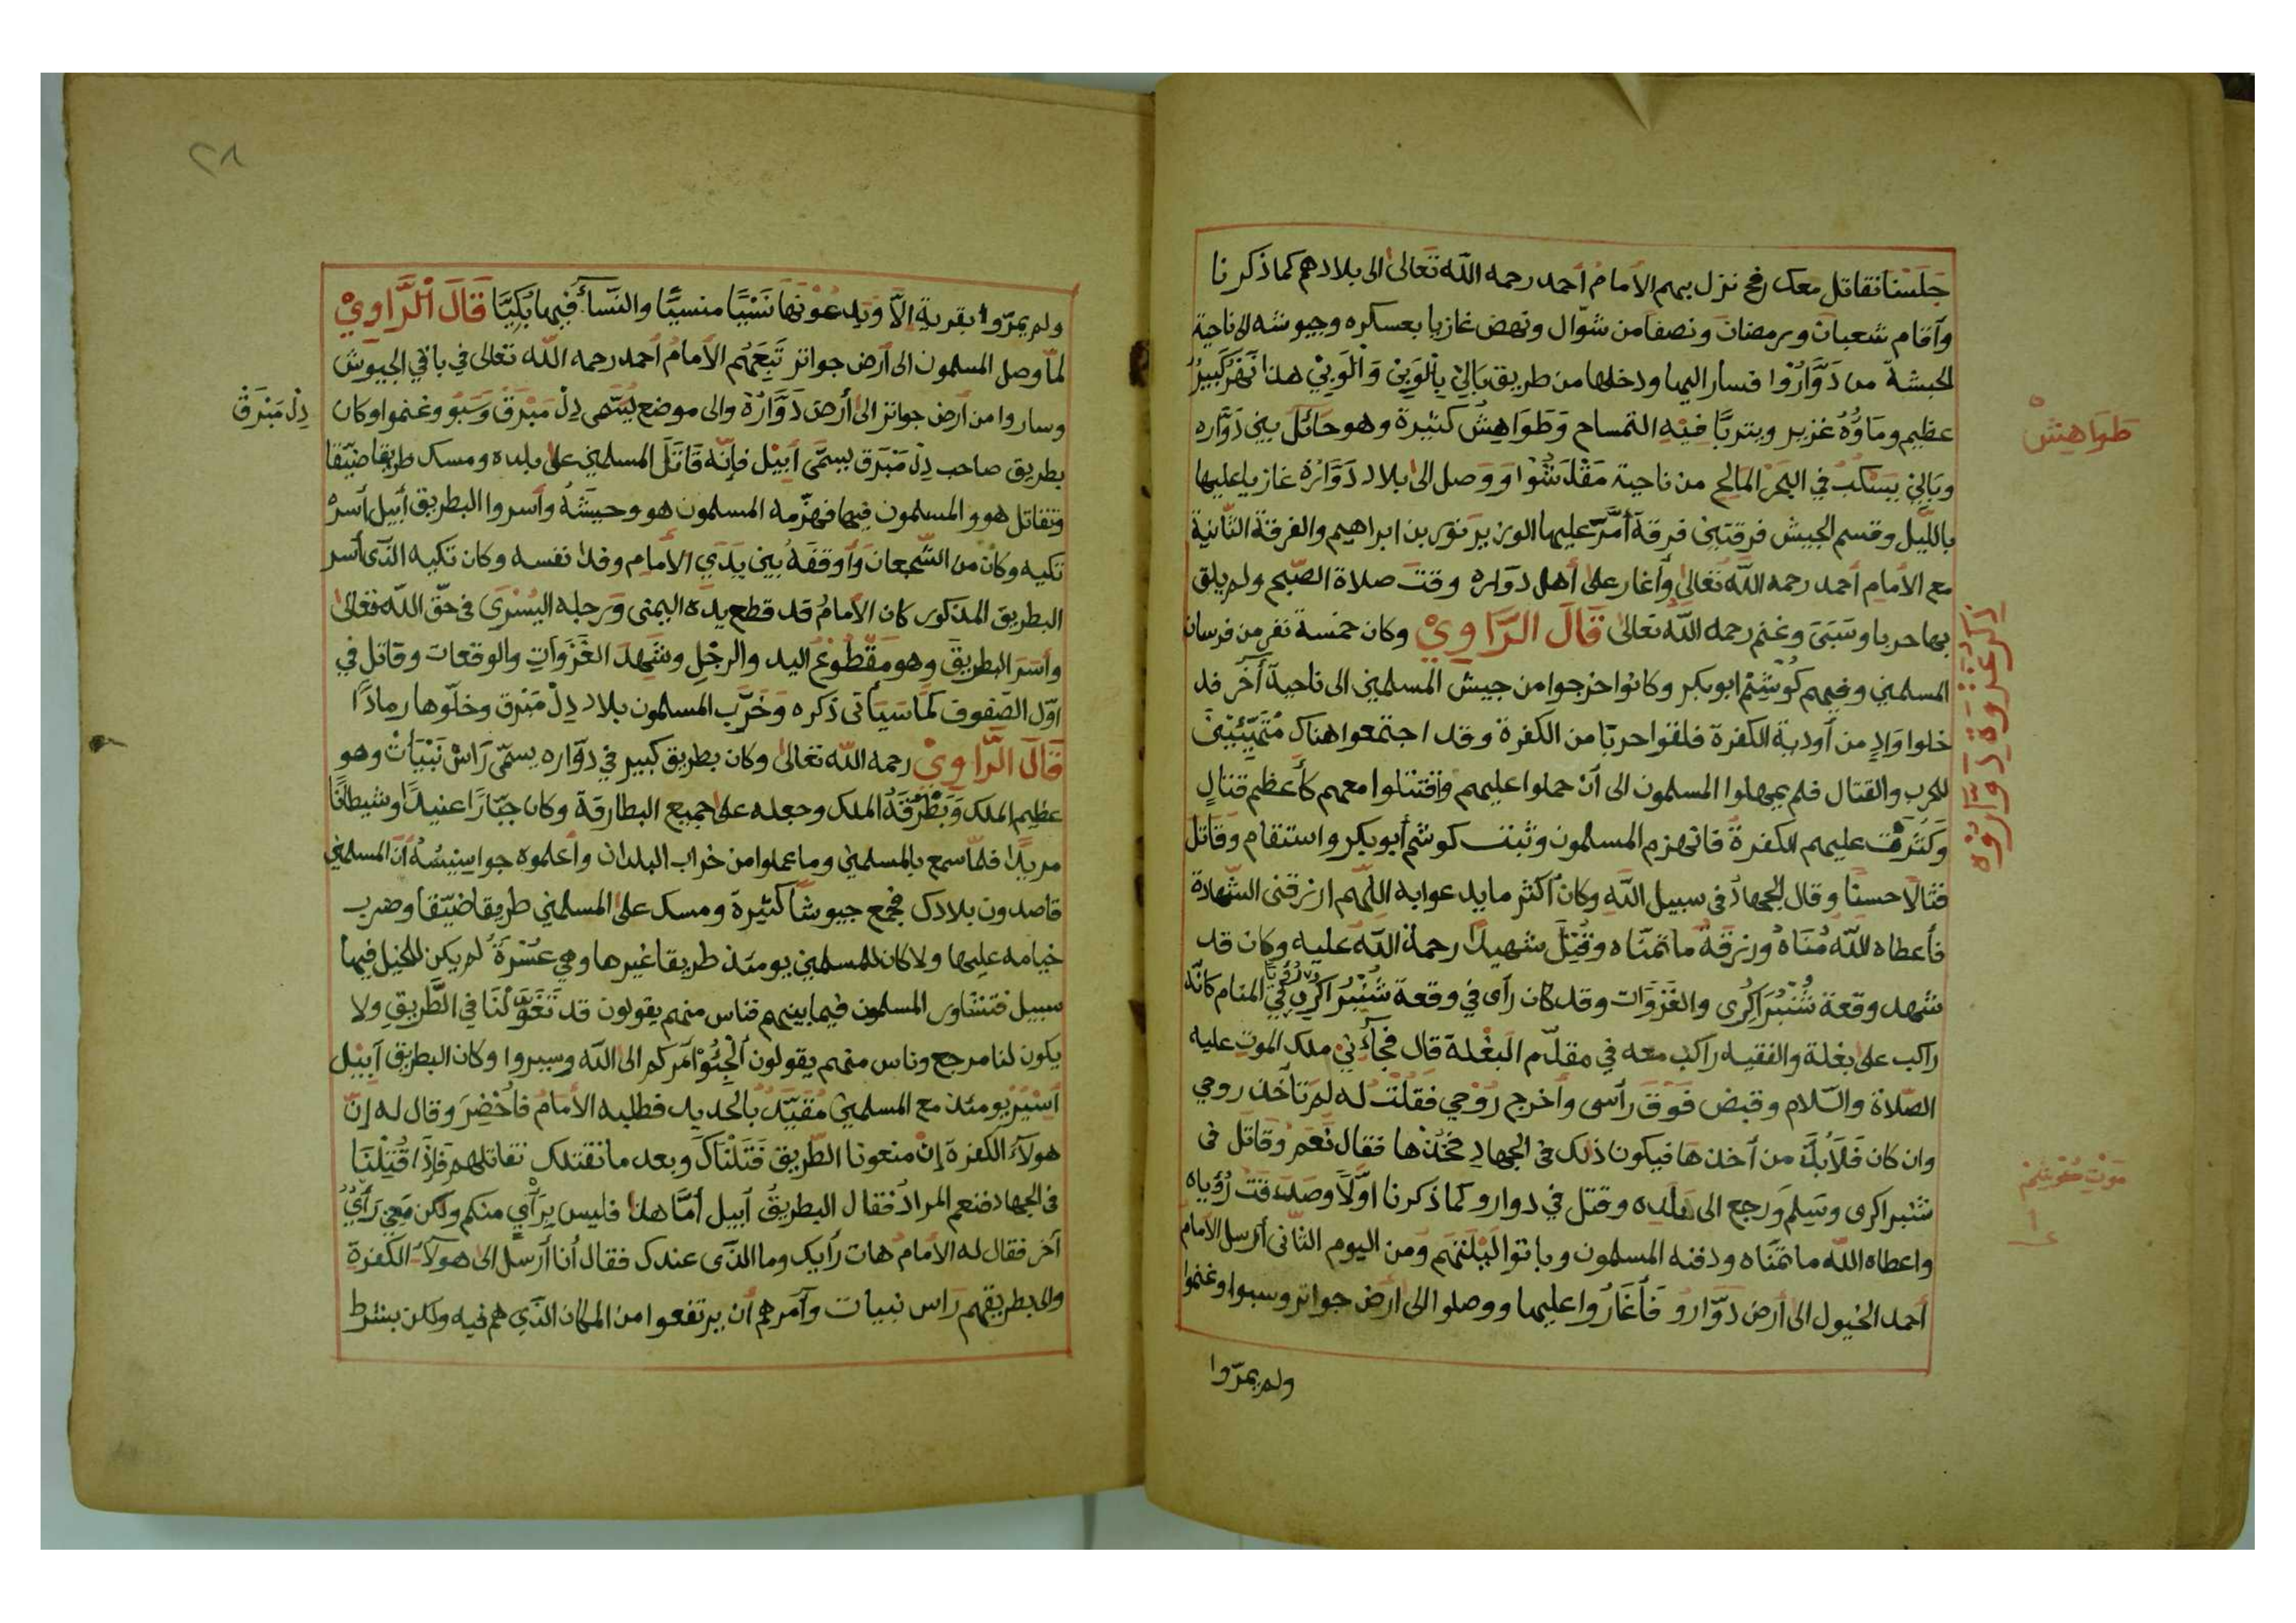 جَلَسْنَا نقاتل معك رمح نزل بهم الأمامُ أحمد رحمه اللّه تعالىٰ الى بلادهم كما ذكرنا
وأقام شعبان ورمضان ونصفًا من شوّال ونهض غازيا بعسكره وجيوشه الى ناحية
الحبشة من دَوَّارُوا فسار اليها ودخلها من طريق بَالِيْ بِالْوَبِيْ وَالْوَبِيْ هذا نَهْرٌ كَبِيْرٌ
عظيم وماؤُهُ غزير ويتربّا فيْهِ التمساح وَطَوَاهِشْ كثيرة وهو حَائل بين دَوَّاره
وبَالِيْ يَسْكُبُ في البَحَرْ المَالح من ناحية مَقْدَشُوْا ووصل الى بلاد دَوَّارُه غازيا عليها
باللّيل وقسم الجيش فرقتين فرقة أمَّرَ عليها الوزير نور بن ابراهيم والفرقة الثّانية
مع الأمام أحمد رحمه اللّهُ تعالىٰ وأغار علىٰ أهل دواره وقت صلاة الصّبح ولم يلق
بها حربا وسَبَىَ وغنم رحمه اللّه تعالىٰ قَالَ الرَّاوِيْ وكان خمسة نفرٍ من فرسان
المسلمين وفيهم كُوْشَمْ ابوبكر وكانوا خرجوا من جيش المسلمين الى ناحية آخَر قد
خلوا وَادٍ من أودية الكفرة فلقوا حربّا من الكفرة وقد اجتمعوا هناك مُتَهَيِّئِيْنَ
للحرب والقتال فلم يمهلوا المسلمون الى أنْ حملوا عليهم وَاقتتلوا معهم كأعظم قتالٍ
وَكَثُرَتْ عليهم الكفرة فانهزم المسلمون وثبت كوشم أبوبكر واستقام وَقَاتل
قتالًا حسنًا وقال الجهادُ في سبيل اللّهِ وكان أكثر ما يدعوا به اللّهم ارزقنى الشّهادة
فأعطاه اللّهُ مُنَاهُ ورزقهُ ما تمنّاه وقُتِلَ شهيدًا رحمة اللّهُ عليه وكان قد
شهد وقعة شُنْبُرَاكُرِى والغَزَوَات وقد كان رأى في وقعة شُنْبُرَاكُرِى رُؤْيَا فِيْ المنام كأنّه
راكب علىٰ بغلة والفقيه راكبٌ معه في مقدّم البَغْلة قال فجآءَنِيْ ملك الموت عليه
الصّلاة والسّلام وقبض فَوْقَ رأسى وأخرج رُوْحي فقُلْتُ له لِمَ تأخذ روحي
وان كان فَلَاَبُدَّ من أخذها فيكون ذلك فى الجهادِ فخذها فقال نَعَمْ وَقَاتَلَ فى
شنبراكرى وسَلِمَ وَرجع الى بَلَدِه وقتل في دوارو كما ذكرنا اوّلًا وصدقتْ رُؤْياه
واعطاه اللّه ما تمنّاه ودفنه المسلمون وباتوا لَيْلَتَهُم وَمن اليوم الثّانى أرسل الأمامُ
أحمد الخيول الى أرض دَوّارُوْ فَأَغَارُوا عليها ووصلوا الى ارض جواتر وسبوا وغنموا
ولم يمرّوا
طَوَاهِشْ
ذِكْرُ غَزْوَةِ دَوَّارُوْه
مَوْت كُوْشَمْ
٢٨
ولم يمرّوا بقرية اِلّا وَيدعونها نَسْيًا منسيًّا والنّسآءُ فيها بُكِيَّا قَالَ الْرَّاوِيْ
لمّا وصل المسلمون الى أرض جواتر تَبِعَهُم الأمامُ أحمد رحمه اللّه تعالىٰ في باقي الجيوش
وساروا من أرض جواتر الى أرضِ دَوَّارُهْ والى موضع يُسَمّى دِلْ مَبْرَقْ وَسَبُوْ وغنموا وكان
دِلْ مَبْرَقْ
بطريق صاحب دِلْ مَبْرَق يسمَّى أَبِيْل فإنّه قَاتَلَ المسلمين علىٰ بلده ومسك طريقا ضيّقا
وتقاتل هو والمسلمون فيها فهزّمه المسلمون هو وجيشَهُ وأسروا البطريق أبيل أسرهُ
تكيه وكان من الشّجعان وَأوقفَهُ بين يَدَي الأمام وفدا نفسه وكان تكيه الذّى أسر
البطريق المذكور كان الأمامُ قد قطع يدَهُ اليمنى وَرجله اليُسْرَى فى حقّ اللّه تعالىٰ
وأَسَرَ البطريق وهو مَقْطُوعُ اليد والرِجْلِ وشَهِدَ الغَزَوَاتِ والوقعات وقاتل في
اوّل الصّفوف كما سَيَأتى ذكره وَخَرَّب المسلمون بلاد دِلْ مَبْرق وخلّوها رمادًا
قَالَ الرَّاوِيْ رحمه اللّه تعالىٰ وكان بطريق كبير في دوّاره يسمّى رَاسْ نَبْيَاتْ وهو
عظيم الملك وَبَطْرَقَهُ الملك وجعله علىٰ جميع البطارقة وكان جبّارًا عنيدًا وشيطانًا
مريدًا فلمّا سمع بالمسلمين وما عملوا من خراب البلدان وأعلموه جواسيسُهُ أنّ المسلمين
قاصدون بلادك فجمع جيوشًا كثيرة ومسك على المسلمين طريقا ضيّقا وضرب
خيامه عليها ولا كان للمسلمين يومئذ طريقا غيرها وهي عُسْرَةٌ لم يكن للخيل فيها
سبيل فتشاور المسلمون فيما بينهم فناس منهم يقولون قد تَغَوَّلْنَا في الطَّريق ولا
يكون لنا مرجع وناس منهم يقولون أَلْجِئُوْا أمركم الى اللّه وسيروا وكان البطريق أبيْل
أسيْر يومئذ مع المسلمين مُقَيَّدٌ بالحديد فطلبه الأمامُ فأُحْضِرَ وقال له إنّ
هولآء الكفرة إنْ منعونا الطّريق قَتَلْنَاكَ وبعد ما نقتلك نقاتلهم فَإِذَا قُتِلْنَا
فى الجهاد فنعم المراد فقال البطريقُ أبيل أمَّا هذا فليس بِرَأْيٍ منكم ولكن مَعِي رَأْيٌ
آخر فقال له الأمام هات رأيك وما الذّى عندك فقال أنا أرسل الى هولآء الكفرة
والى بطريقهم رَاس نبيات وآمرهم أن يرتفعوا من المكان الذّي هم فيه ولكن بشرط